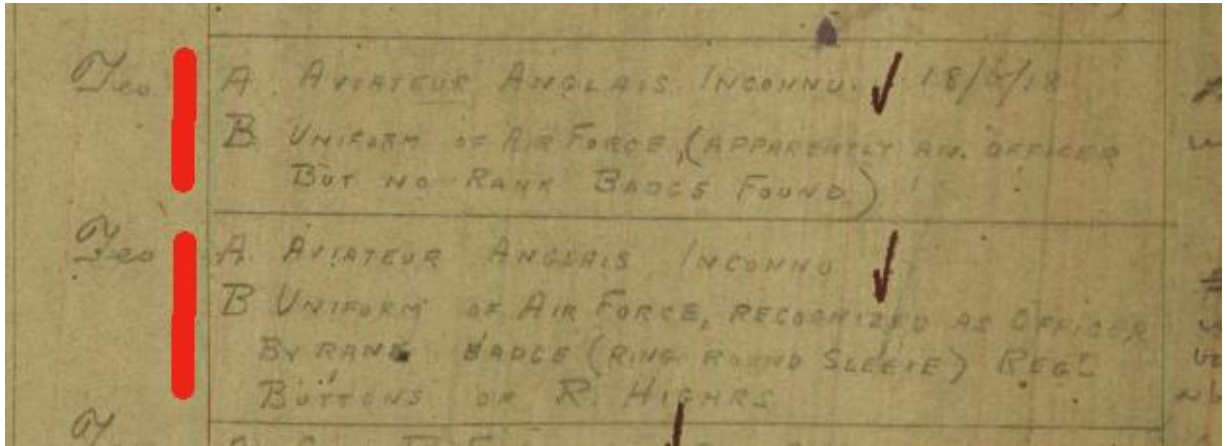 Yes
A. AVIATEUR ANGLAIS INCONNU. 18/5/18
B UNIFORM OF AIR FORCE, (APPARENTLY AN. OFFICER
BUT NO RANK BADGE FOUND)
Yes
A. AVIATEUR ANGLAIS INCONNU
B UNIFORM OF AIR FORCE, RECOGNIZED AS OFFICER
BY RANK BADGE (RING ROUND SLEEVE) REGL
BUTTONS OR R. HIGHRS